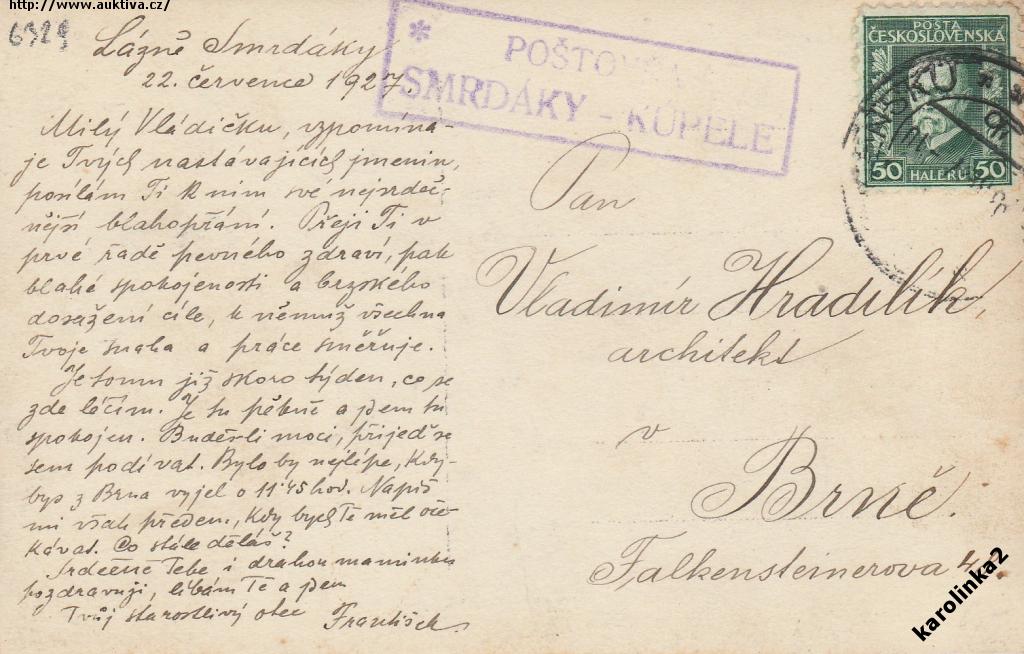 http://www.auktiva.cz/
6929
Lázně Smrdáky
22. července 1927.
Milý Vládíčku, vzpomína-
je Tvých nastávajících jmenin,
posílám Ti k nim své nejsrdeč-
nější blahopřání. Přeji Ti v
prvé řadě pevného zdraví, pak
blahé spokojenosti a brzského
dosažení cíle, k němuž všechna
Tvoje snaha a práce směřuje.
Je tomu již skoro týden, co se
zde léčím. Je tu pěkně a jsem tu
spokojen. Budeš-li moci, přijeď se
sem podívat. Bylo by nejlépe, kdy-
bys z Brna vyjel o 11:45 hod. Napiš
mi však předem, kdy bych Tě měl oče-
kávat. Co stále děláš?
Srdečně Tebe i drahou maminku
pozdravuji, líbám Tě a jsem
Tvůj starostlivý otec František.
* POŠTOVNA
SMRDÁKY - KÚPELE
POŠTA
ČESKOSLOVENSKÁ
50 HALÉŘŮ 50
Pan
Vladimír Hradilík,
architekt
v
Brně.
Falkensteinerova
karolinka2